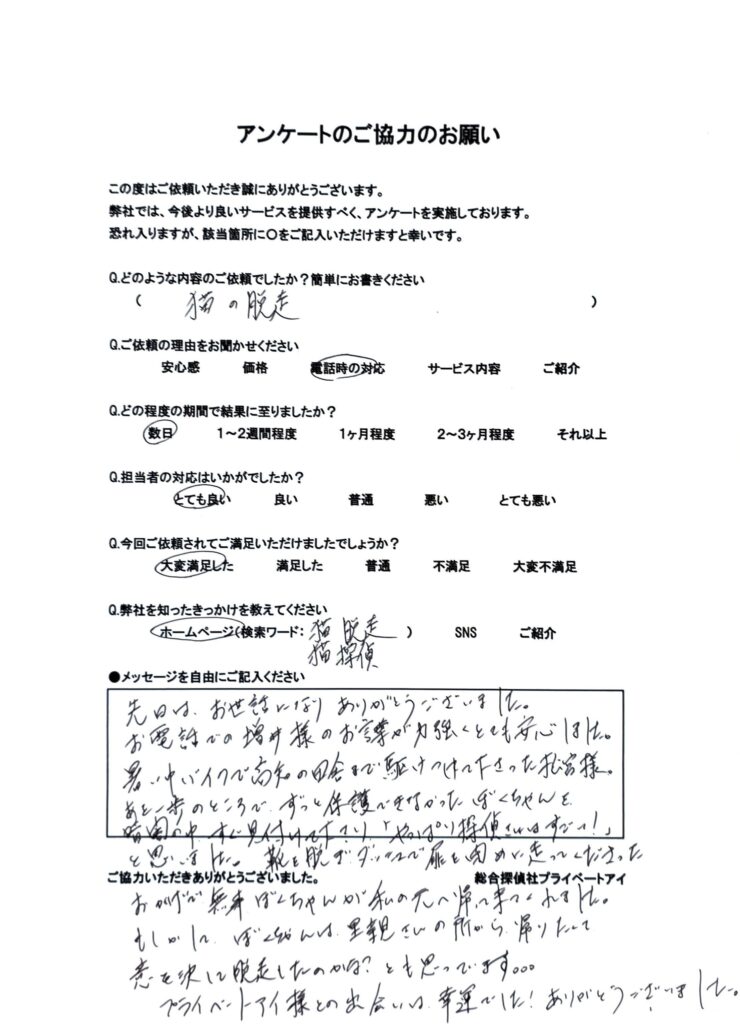 アンケートのご協力のお願い
この度はご依頼いただき誠にありがとうございます。
弊社では、今後より良いサービスを提供すべく、アンケートを実施しております。
恐れ入りますが、該当箇所に〇をご記入いただけますと幸いです。
Q.どのような内容のご依頼でしたか？簡単にお書きください
( 猫の脱走 )
Q.ご依頼の理由をお聞かせください
安心感 価格 電話時の対応 サービス内容 ご紹介
Q.どの程度の期間で結果に至りましたか？
数日 1～2週間程度 1ヶ月程度 2～3ヶ月程度 それ以上
Q.担当者の対応はいかがでしたか？
とても良い 良い 普通 悪い とても悪い
Q.今回ご依頼されてご満足いただけましたでしょうか？
大変満足した 満足した 普通 不満足 大変不満足
Q.弊社を知ったきっかけを教えてください
ホームページ(検索ワード: 猫 脱走 ) SNS ご紹介
猫 探偵
●メッセージを自由にご記入ください
先日は、お世話になりありがとうございました。
お電話での増井様のお言葉が力強くとても安心しました。
暑い中バイクで高知の田舎まで駆けつけて下さった松宮様。
あと一歩のところで、ずっと保護できなかったぼくちゃんを
暗闇の中、すぐ見付けて下さり「やっぱり探偵さんはすごい!」
と思いました。靴を脱ぎダッシュで扉を閉めに走ってくださった
ご協力いただきありがとうございました。 総合探偵社プライベートアイ
おかげで無事ぼくちゃんが私の元へ帰って来てくれました。
もしかして、ぼくちゃんは、里親さんの所から、帰りたくて
意を決して脱走したのかな?とも思ってます。。。
プライベートアイ様との出会いは、幸運でした!ありがとうございました。